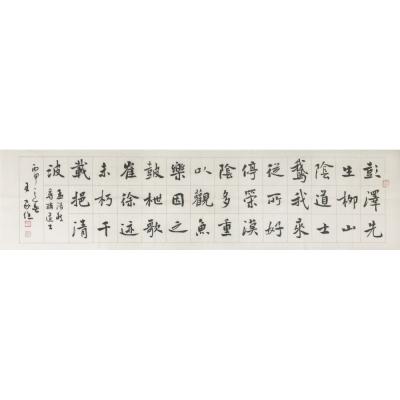 彭澤先
生柳山
陰道士
鵞我來
從所好
停策漢
陰多重
以觀魚
樂因之
鼓枻歌
崔徐迹
未朽千
載挹清
波
孟浩然
尋梅道士
丙申